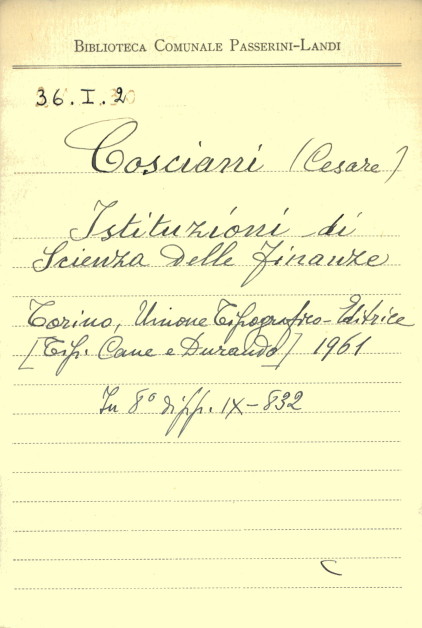 BIBLIOTECA COMUNALE PASSERINI-LANDI
36.I.2
Cosciani (Cesare)
Istituzioni di
Scienza delle Finanze
Torino, Unione Tipografico-Editrice
[Tip. Cane e Durando] 1961
In 8° di pp. IX-832